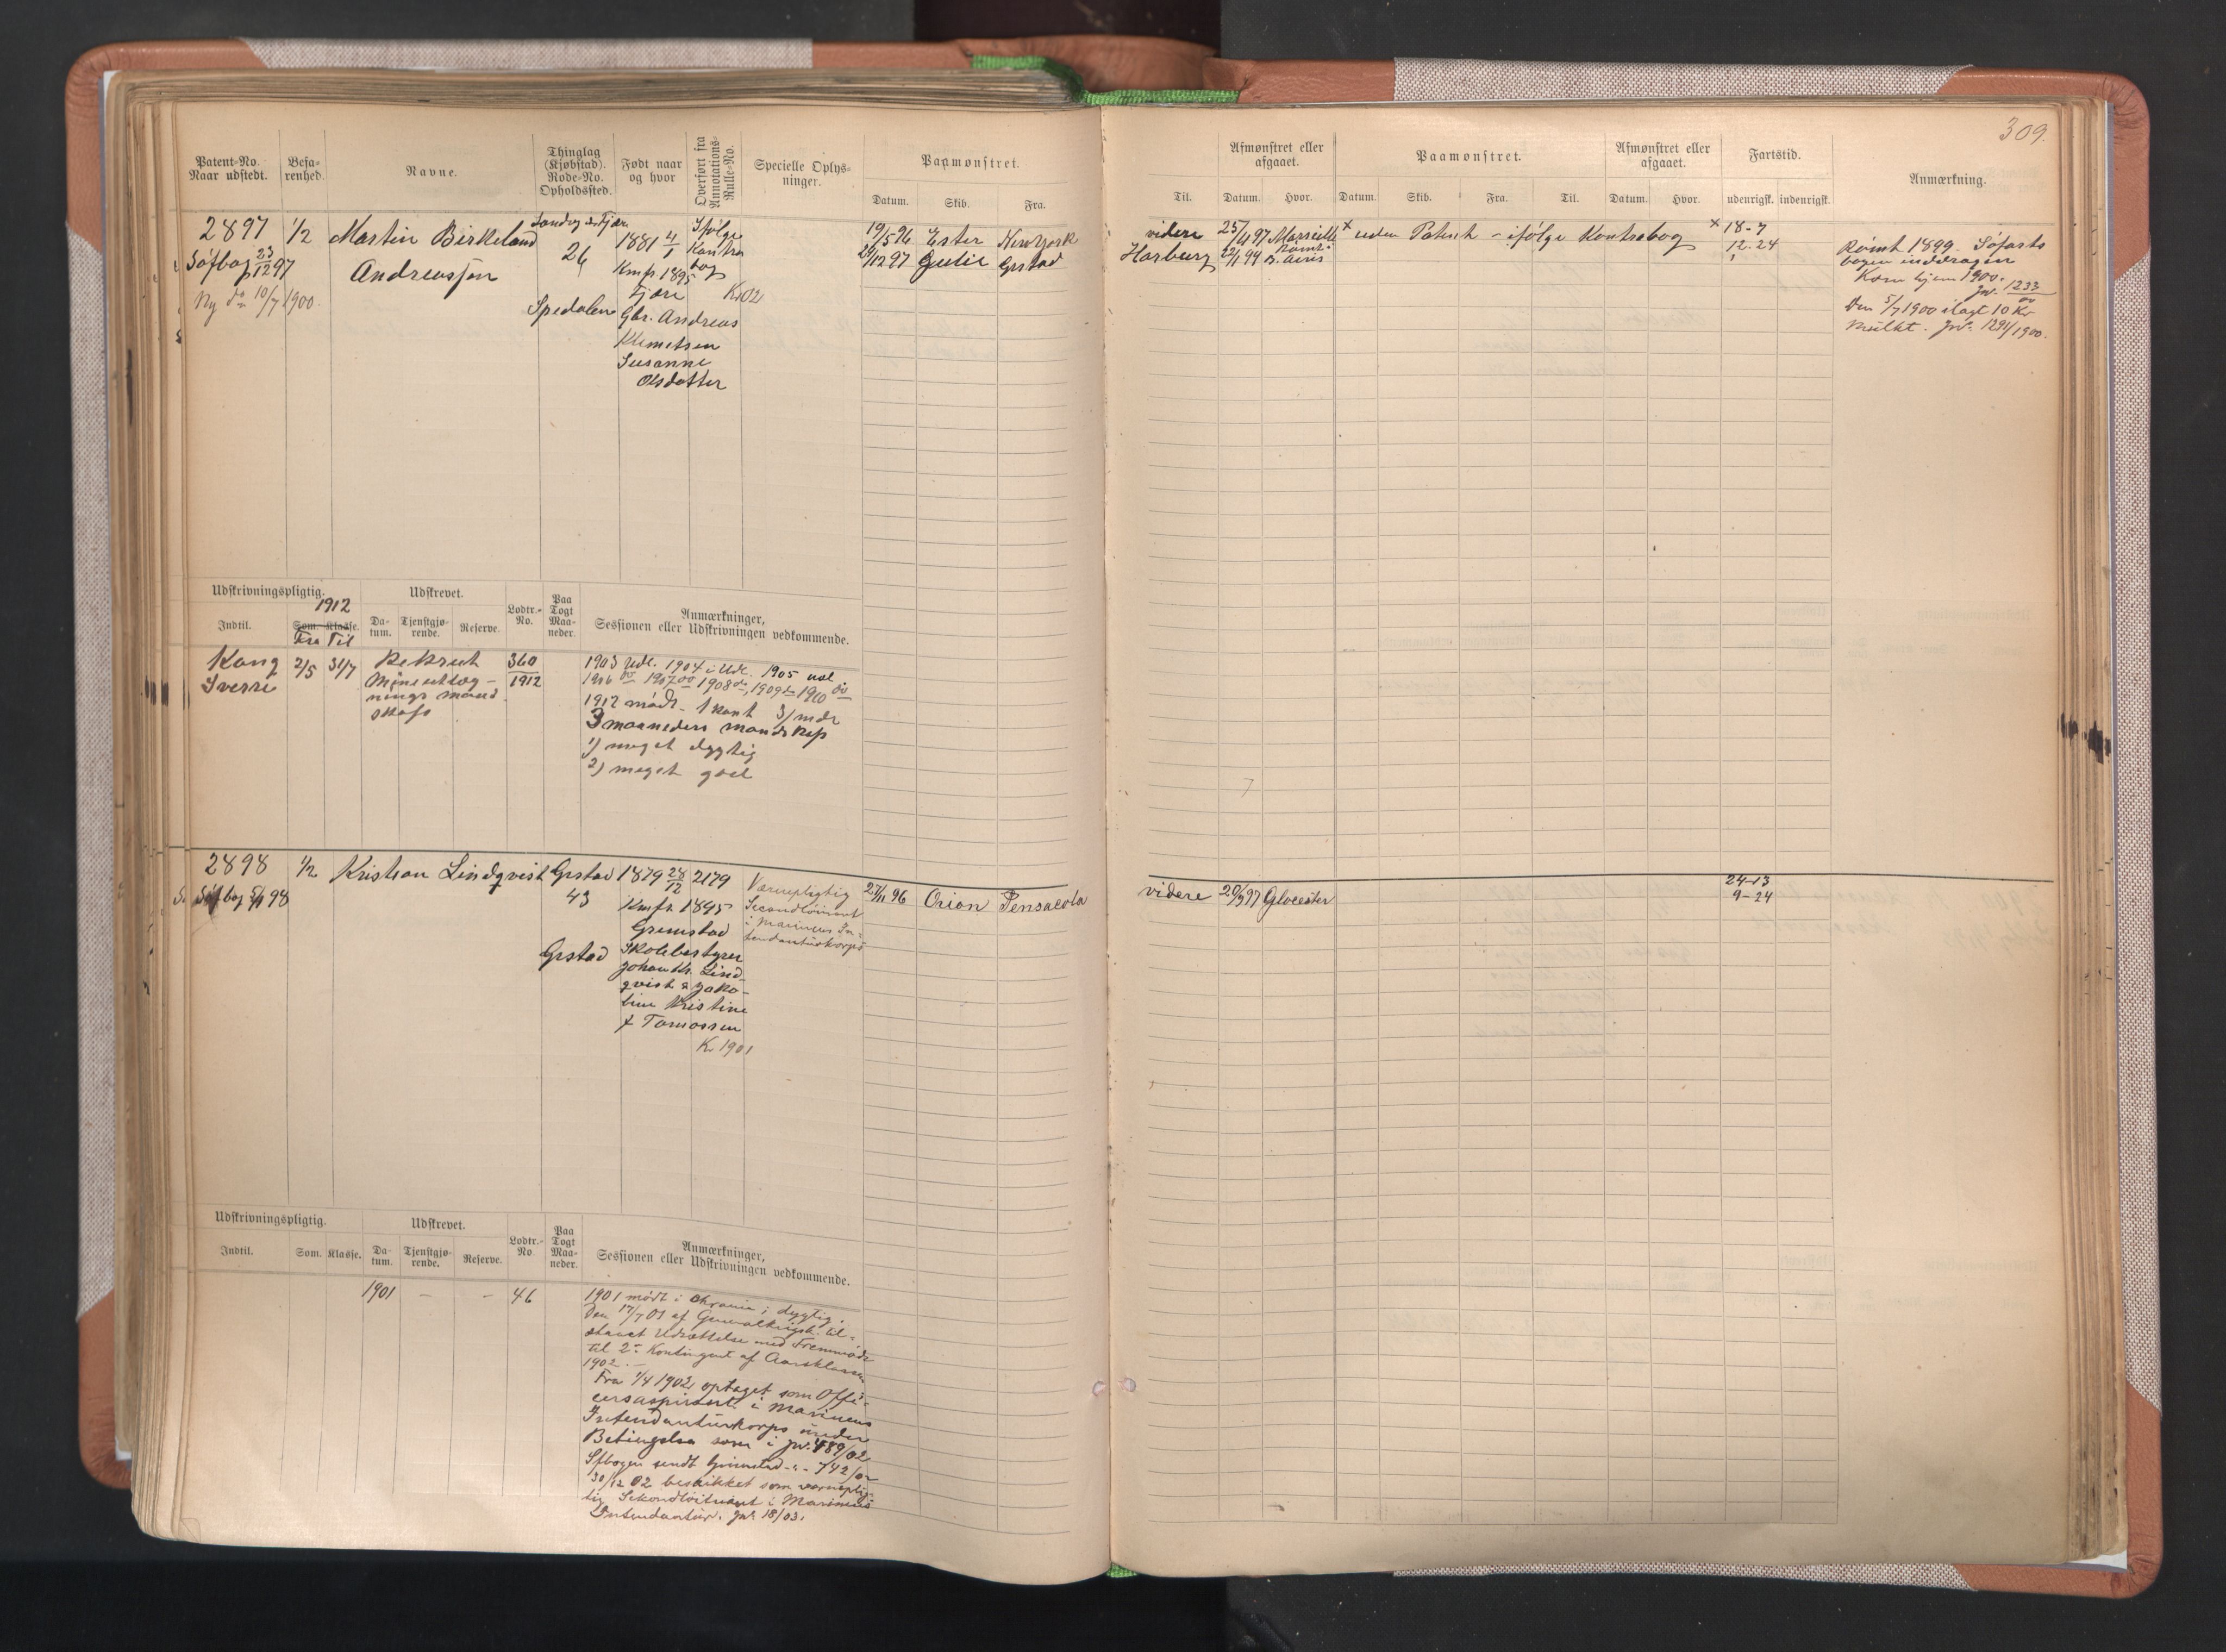 309.
Patent-No. Naar udstedt.
Befarenhed.
Navne.
Thinglag (Kjøbstad). Rode-No. Opholdssted.
Født naar og hvor
Overført fra Annotations-Rulle-No.
Specielle Oplysninger.
Paamønstret.
Datum. Skib. Fra. Til.
Afmønstret eller afgaaet.
Datum. Hvor.
Paamønstret.
Datum. Skib. Fra. Til.
Afmønstret eller afgaaet.
Datum. Hvor.
Fartstid.
udenrigsk. indenrigsk.
Anmærkning.
2897
Søfbog 23/12 97
Ny do 10/7 1900.
1/2
Martin Birkeland
Andreassen
26
Spedalen
1881 4/1
Kmfr. 1895
Fjære
Gbr. Andreas
Klemetsen
Susanne
Olsdatter
Ifølge
Kontra
bog
K. 02
19/5 96 Ester New York videre 25/4 97 Marseille
× uden Patent - ifølge Kontrabog ×
18-7
Grstad Harburg B. Aires
12-24
Rømt 1899. Søfarts
bogen inddragen
Kom hjem 1900.
Jnr. 1233/00
Den 5/7 1900 ilagt 10 Kr
Mulkt. Jnr. 1291/1900.
Udskrivningspligtig.
1912
Indtil. Som. Klasse.
Fra Til
Udskrevet.
Datum. Tjenstgjørende. Reserve.
Lodtr.-No.
Paa Togt Maaneder.
Anmærkninger,
Sessionen eller Udskrivningen vedkommende.
Kong
Sverre
2/5 31/7
Rekrut
Mineudlæg-
nings mand
skaf
360
1912
1903 Udl. 1904 i Udl. 1905 udl
1906 do 1907 do 1908 do, 1909 do 1910 do
1912 mødt - 1 kont 3/mdr
3 maaneders mandskap
1) meget dygtig
2) meget god
2898
Søfbog 5/1 98
1/2
Kristian Lindqvist
Grstad
43
Grstad
1879 28/12
Kmfr. 1895
Grimstad
Skolebestyrer
Johan Kr. Lind-
qvist & Jako-
bine Kristine
f Tomassen
K. 1901
2179
Værnepligtig
Secondløitnant
i Marinens In-
tendanturkorps
27/11 96 Orion Pensacola videre 20/9 97 Glocester
24-13
9-24
Udskrivningspligtig.
Indtil. Som. Klasse.
Udskrevet.
Datum. Tjenstgjørende. Reserve.
Lodtr.-No
Paa Togt Maaneder.
Anmærkninger,
Sessionen eller Udskrivningen vedkommende.
1901 - - 46
1901 mødt i Chrania; dygtig.
Den 17/7 01 af Generalkrigsk. til-
staaet Udsættelse med Fremmøde
til 2' Kontingent af Aarsklassen
1902. -
Fra 1/4 1902 optaget som Offi-
cersaspirant i Marinens
Intendanturkorps under
Betingelse som i Jnr. 489/02
Sfbogen sendt Grimstad -"- 742/02
30/12 02 beskikket som værneplig-
tig Sekondløitnant i Marinens
Intendantur. Jnr. 18/03.